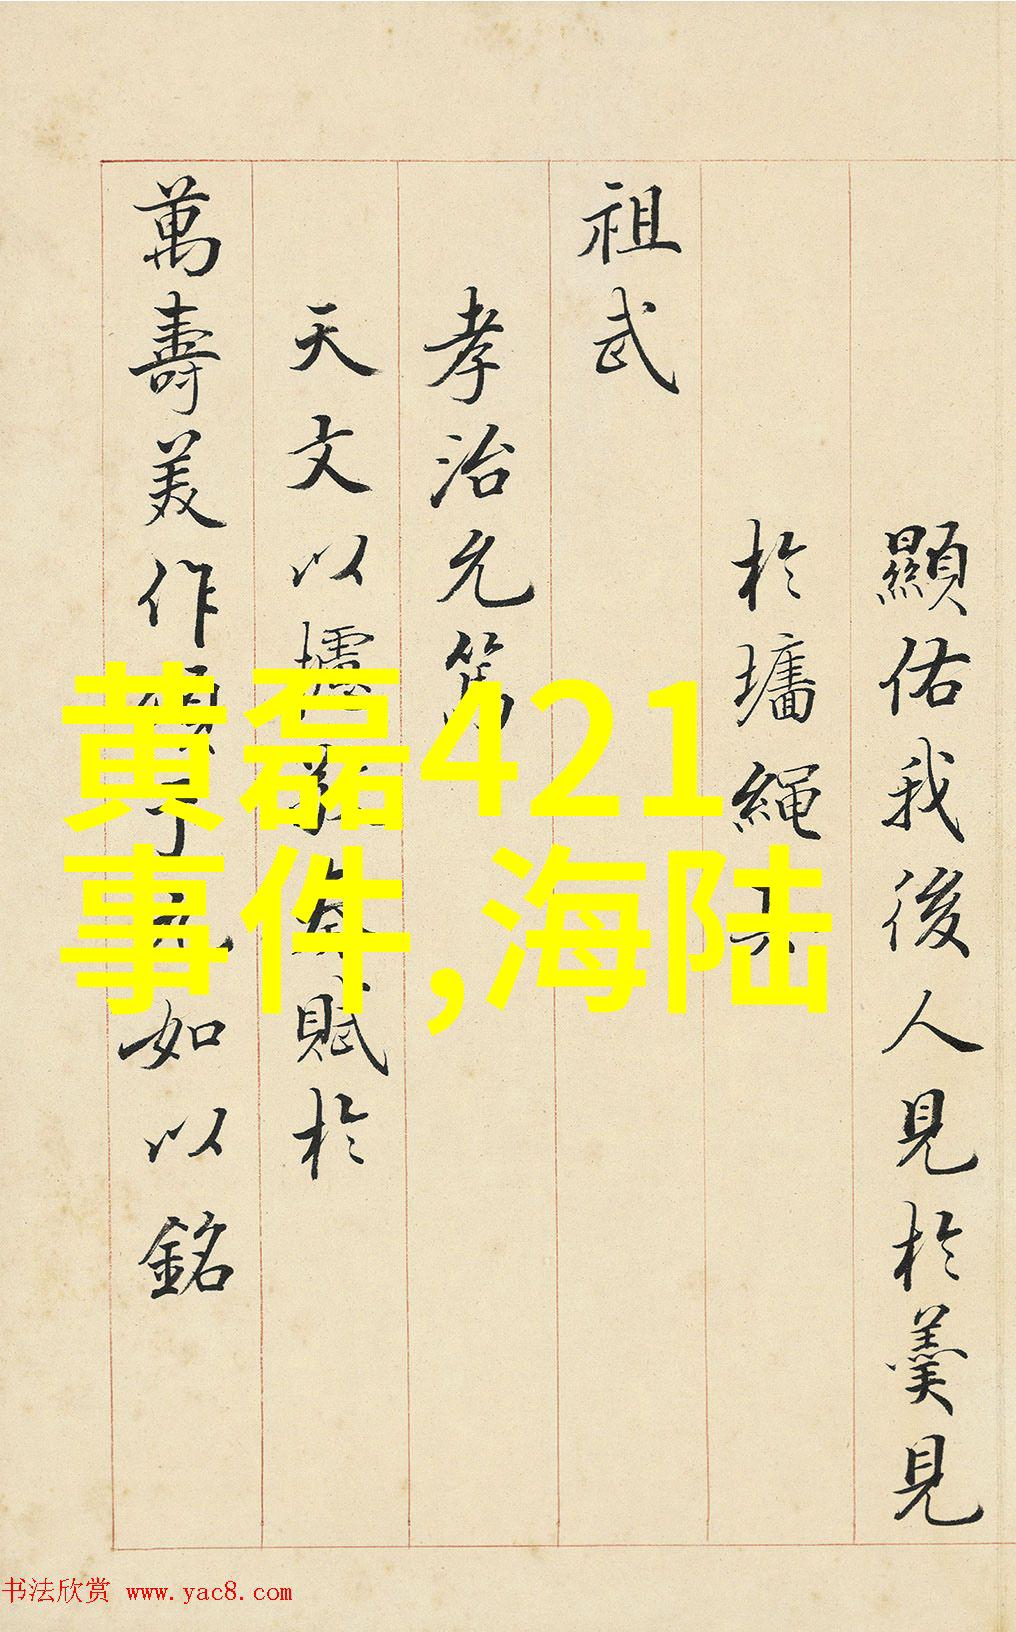 顯佑我後人見於羹見
於墻繩
祖武
孝治允篤
天文以攄敬奏賦於
萬壽美作頌 如以銘
黄磊421
事件,海陆
书法欣赏 www.yac8.com